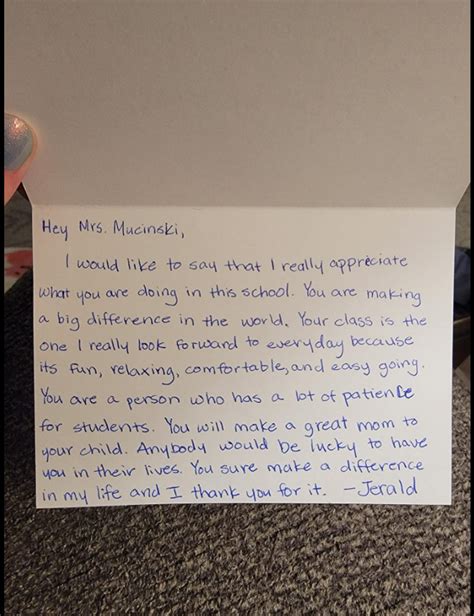 Hey Mrs. Mucinski,
I would like to say that I really appreciate
what you are doing in this school. You are making
a big difference in the world. Your class is the
one I really look forward to everyday because
its fun, relaxing, comfortable, and easy going.
You are a person who has a lot of patience
for students. You will make a great mom to
your child. Anybody would be lucky to have
you in their lives. You sure make a difference
in my life and I thank you for it. -Jerald